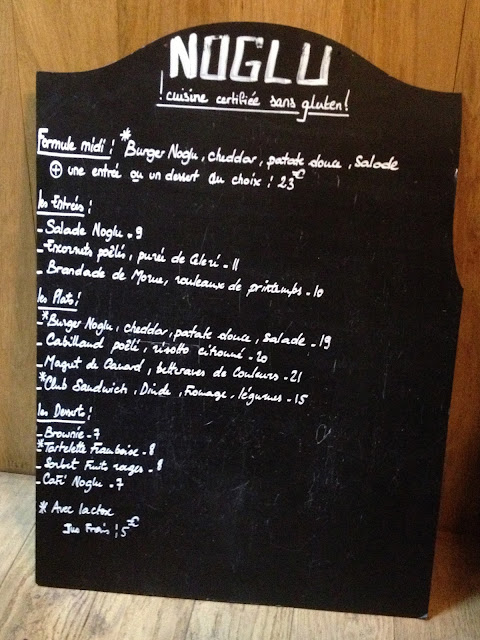 NOGLU
! cuisine certifiée sans gluten !
Formule midi ! * Burger Noglu, cheddar, patate douce, salade
⊕ une entrée ou un dessert au choix ! 23€
les Entrées !
- Salade Noglu - 9
- Encornets poêlés, purée de Céleri - 11
- Brandade de Morue, rouleaux de printemps - 10
les Plats !
- *Burger Noglu, cheddar, patate douce, salade - 19
- Cabillaud poêlé, risotto citronné - 20
- Magret de Canard, betteraves de Couleurs - 21
*Club Sandwich, Dinde, Fromage, légumes - 15
les Dessert !
- Brownie - 7
*Tartelette Framboise - 8
- Sorbet Fruits rouges - 8
- Café Noglu - 7
* Avec lactose
Jus Frais ! 5€